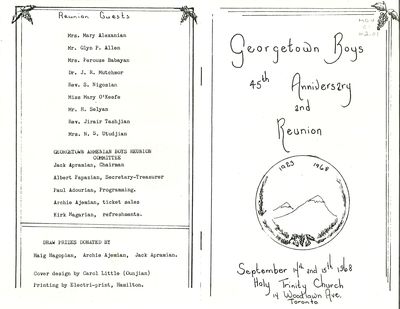 Reunion Guests
Mrs. Mary Alexanian
Mr. Glyn P. Allen
Mrs. Perouse Babayan
Dr. J. R. Mutchmor
Rev. S. Nigosian
Miss Mary O'Keefe
Mr. H. Selyan
Rev. Jirair Tashjian
Mrs. N. S. Utudjian
GEORGETOWN ARMENIAN BOYS REUNION
COMMITTEE
Jack Apramian, Chairman
Albert Papazian, Secretary-Treasurer
Paul Adourian, Programming.
Archie Ajemian, ticket sales
Kirk Magarian, refreshments.
DRAW PRIZES DONATED BY
Haig Magopian, Archie Ajemian, Jack Apramian.
Cover design by Carol Little (Gumjian)
Printing by Electri-print, Hamilton.
Georgetown Boys
45th Anniversary
and
Reunion
1923 1968
September 14th and 15th 1968
Holy Trinity Church
14 Woodlawn Ave.
Toronto